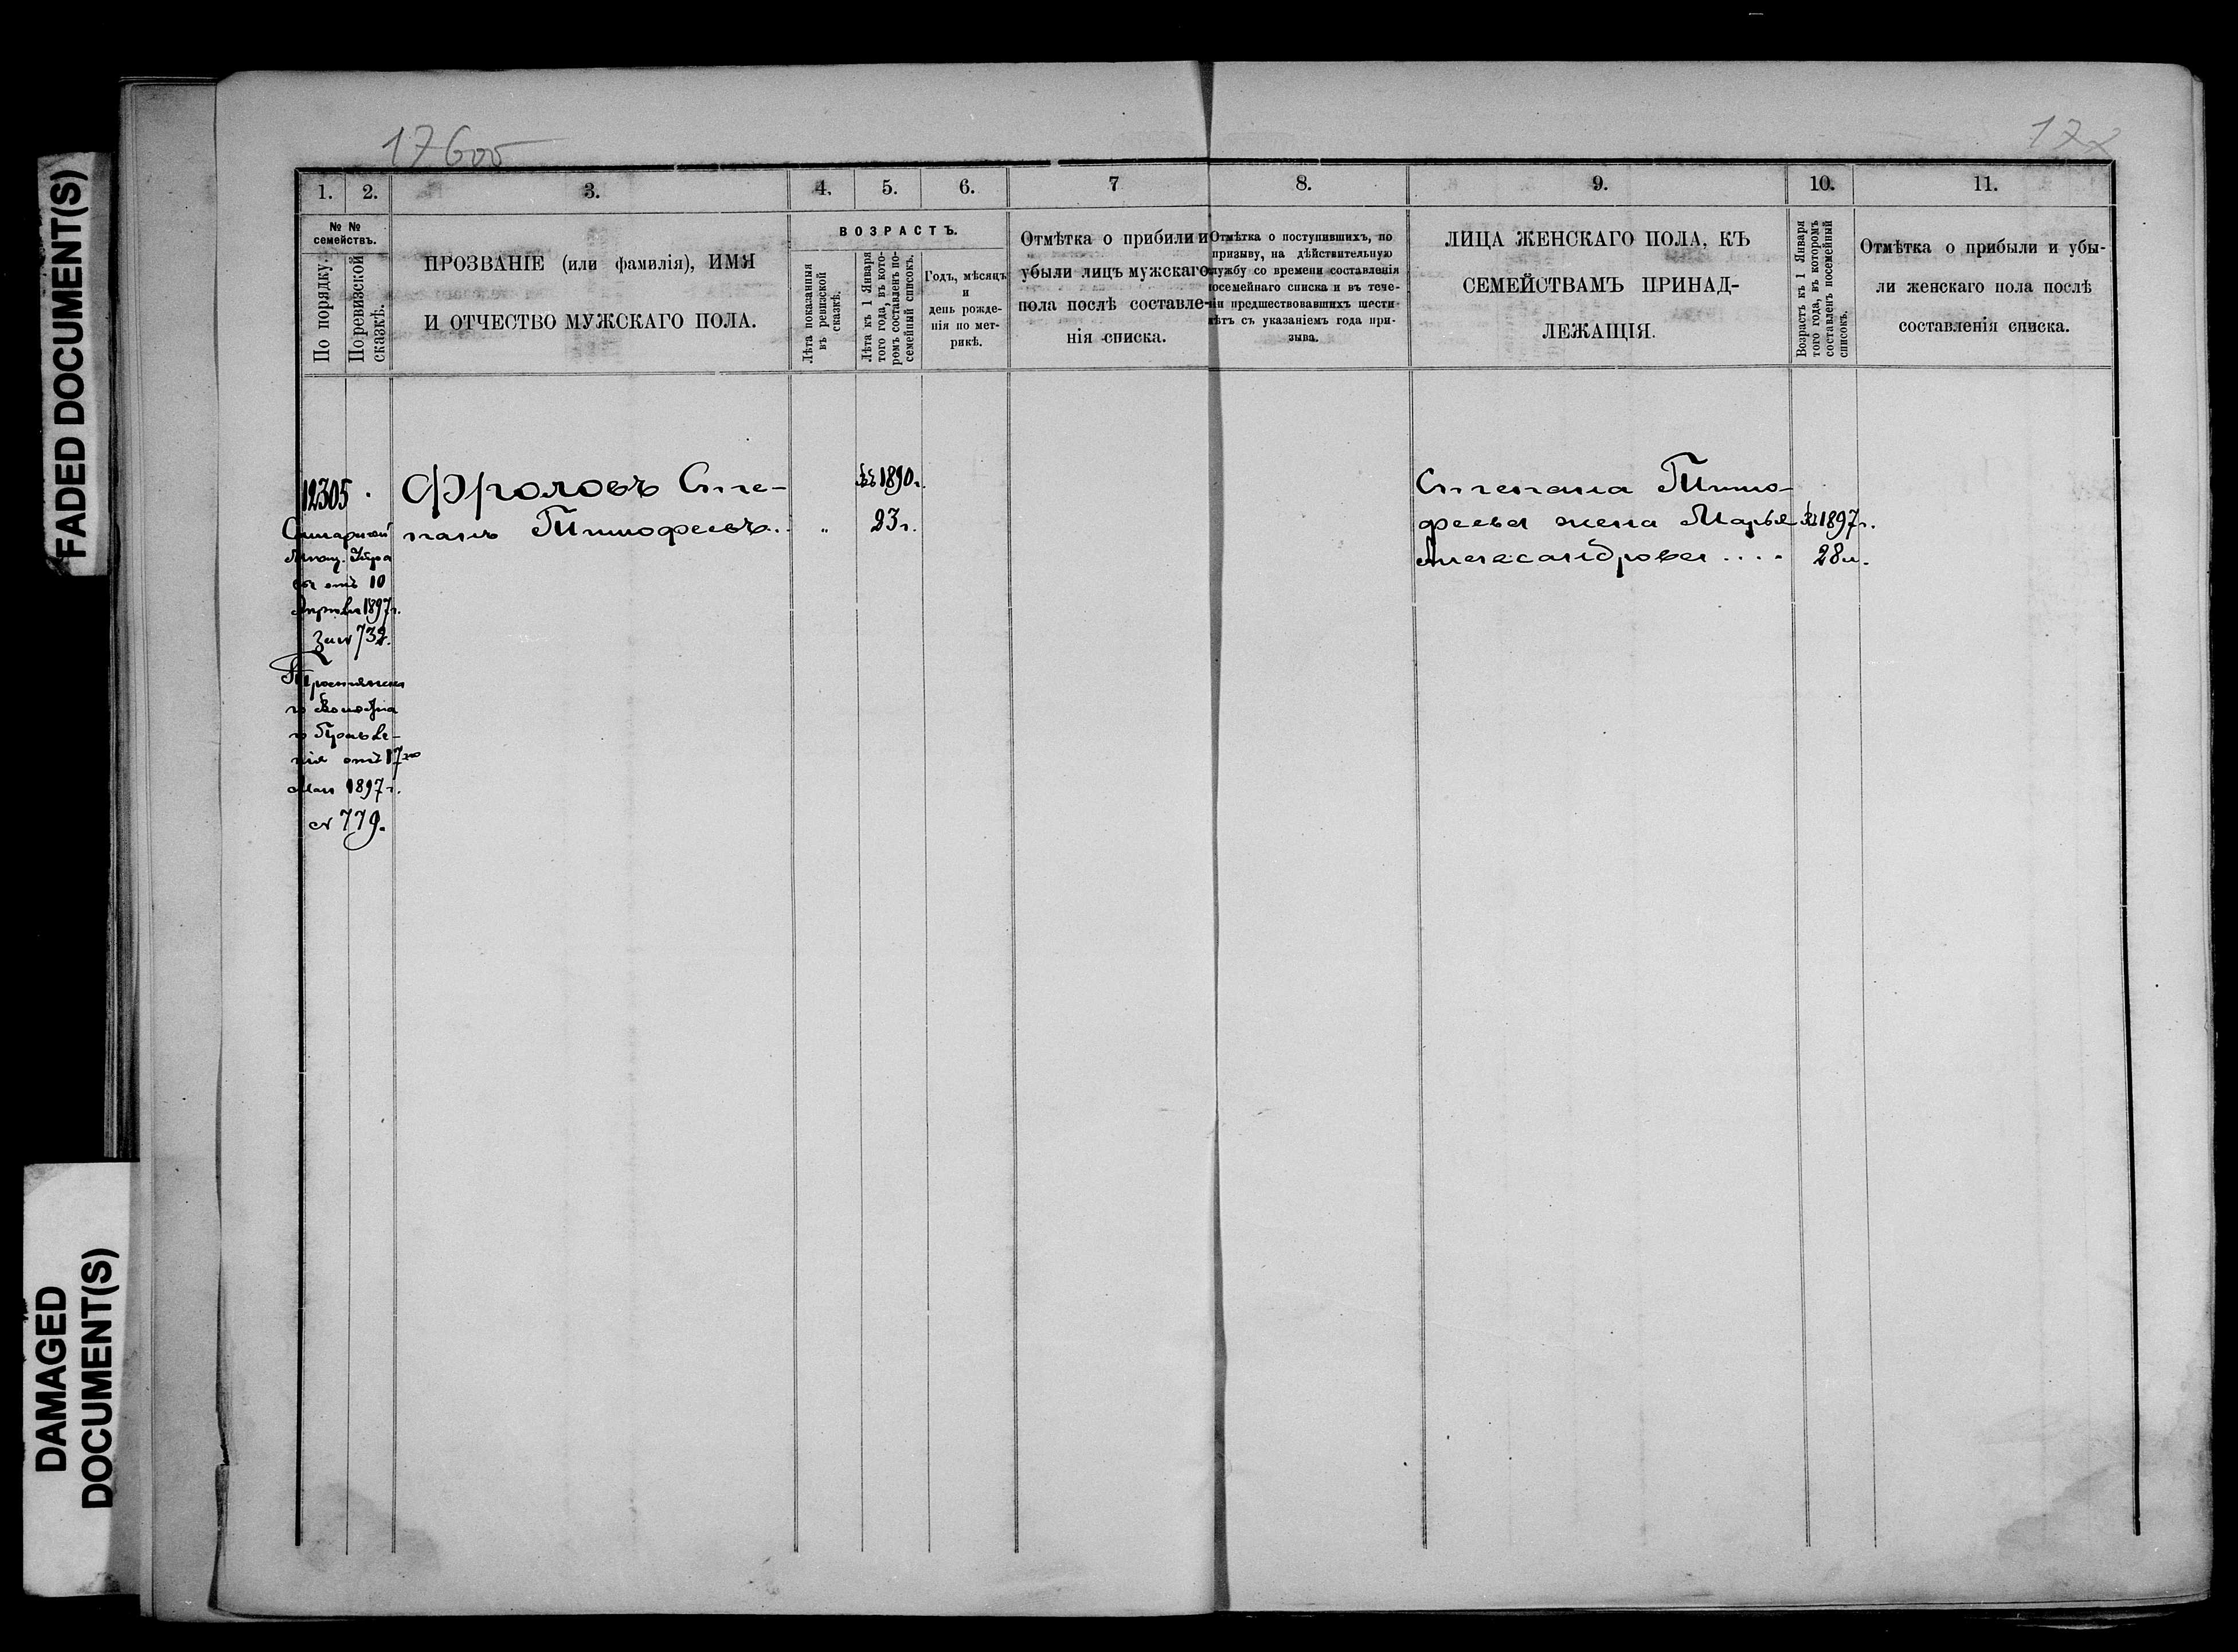 FADED DOCUMENT(S)
DAMAGED
DOCUMENT(S)
17
17
1.
2.
3.
4.
5.
6.
7
8.
9.
10.
11.
№ №
семействъ.
По порядку.
По ревизской
сказкѣ.
ПРОЗВАНІЕ (или фамилія), ИМЯ
И ОТЧЕСТВО МУЖСКАГО ПОЛА.
ВОЗРАСТЪ.
Лѣта показанныя
въ ревизской
сказкѣ.
Лѣта къ 1 Января
того года, въ кото-
ромъ составленъ по-
семейный списокъ.
Годъ, мѣсяцъ
и
день рожде-
нія по мет-
рикѣ.
Отмѣтка о прибили и
убыли лицъ мужскаго
пола послѣ составле-
нія списка.
Отмѣтка о поступившихъ, по
призыву, на дѣйствительную
службу со времени составленія
посемейнаго списка и въ тече-
ніи предшествовавшихъ шести-
лѣтъ съ указаніемъ года при-
зыва.
ЛИЦА ЖЕНСКАГО ПОЛА, КЪ
СЕМЕЙСТВАМЪ ПРИНАД-
ЛЕЖАЩІЯ.
Возрастъ къ 1 Января
того года, въ которомъ
составленъ посемейный
списокъ.
Отмѣтка о прибыли и убы-
ли женскаго пола послѣ
составленія списка.
12305.
Фроловъ Сте-
панъ Тимофеевъ.
"
въ 1890г.
23г.
отъ 10
Апрѣля 1897г.
за № 732.
Правле-
нія отъ 17го
Мая 1897г.
№ 779.
Степана Тимо-
феева жена Марья
Александрова ....
въ 1897г.
28л.